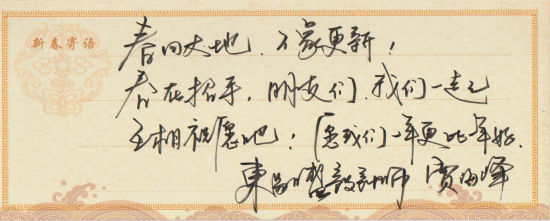 新春寄语
春回大地、万象更新!
春在招手,朋友们,我们一起
互相祝愿吧:愿我们一年更比一年好。
東 設計师 贾海峰